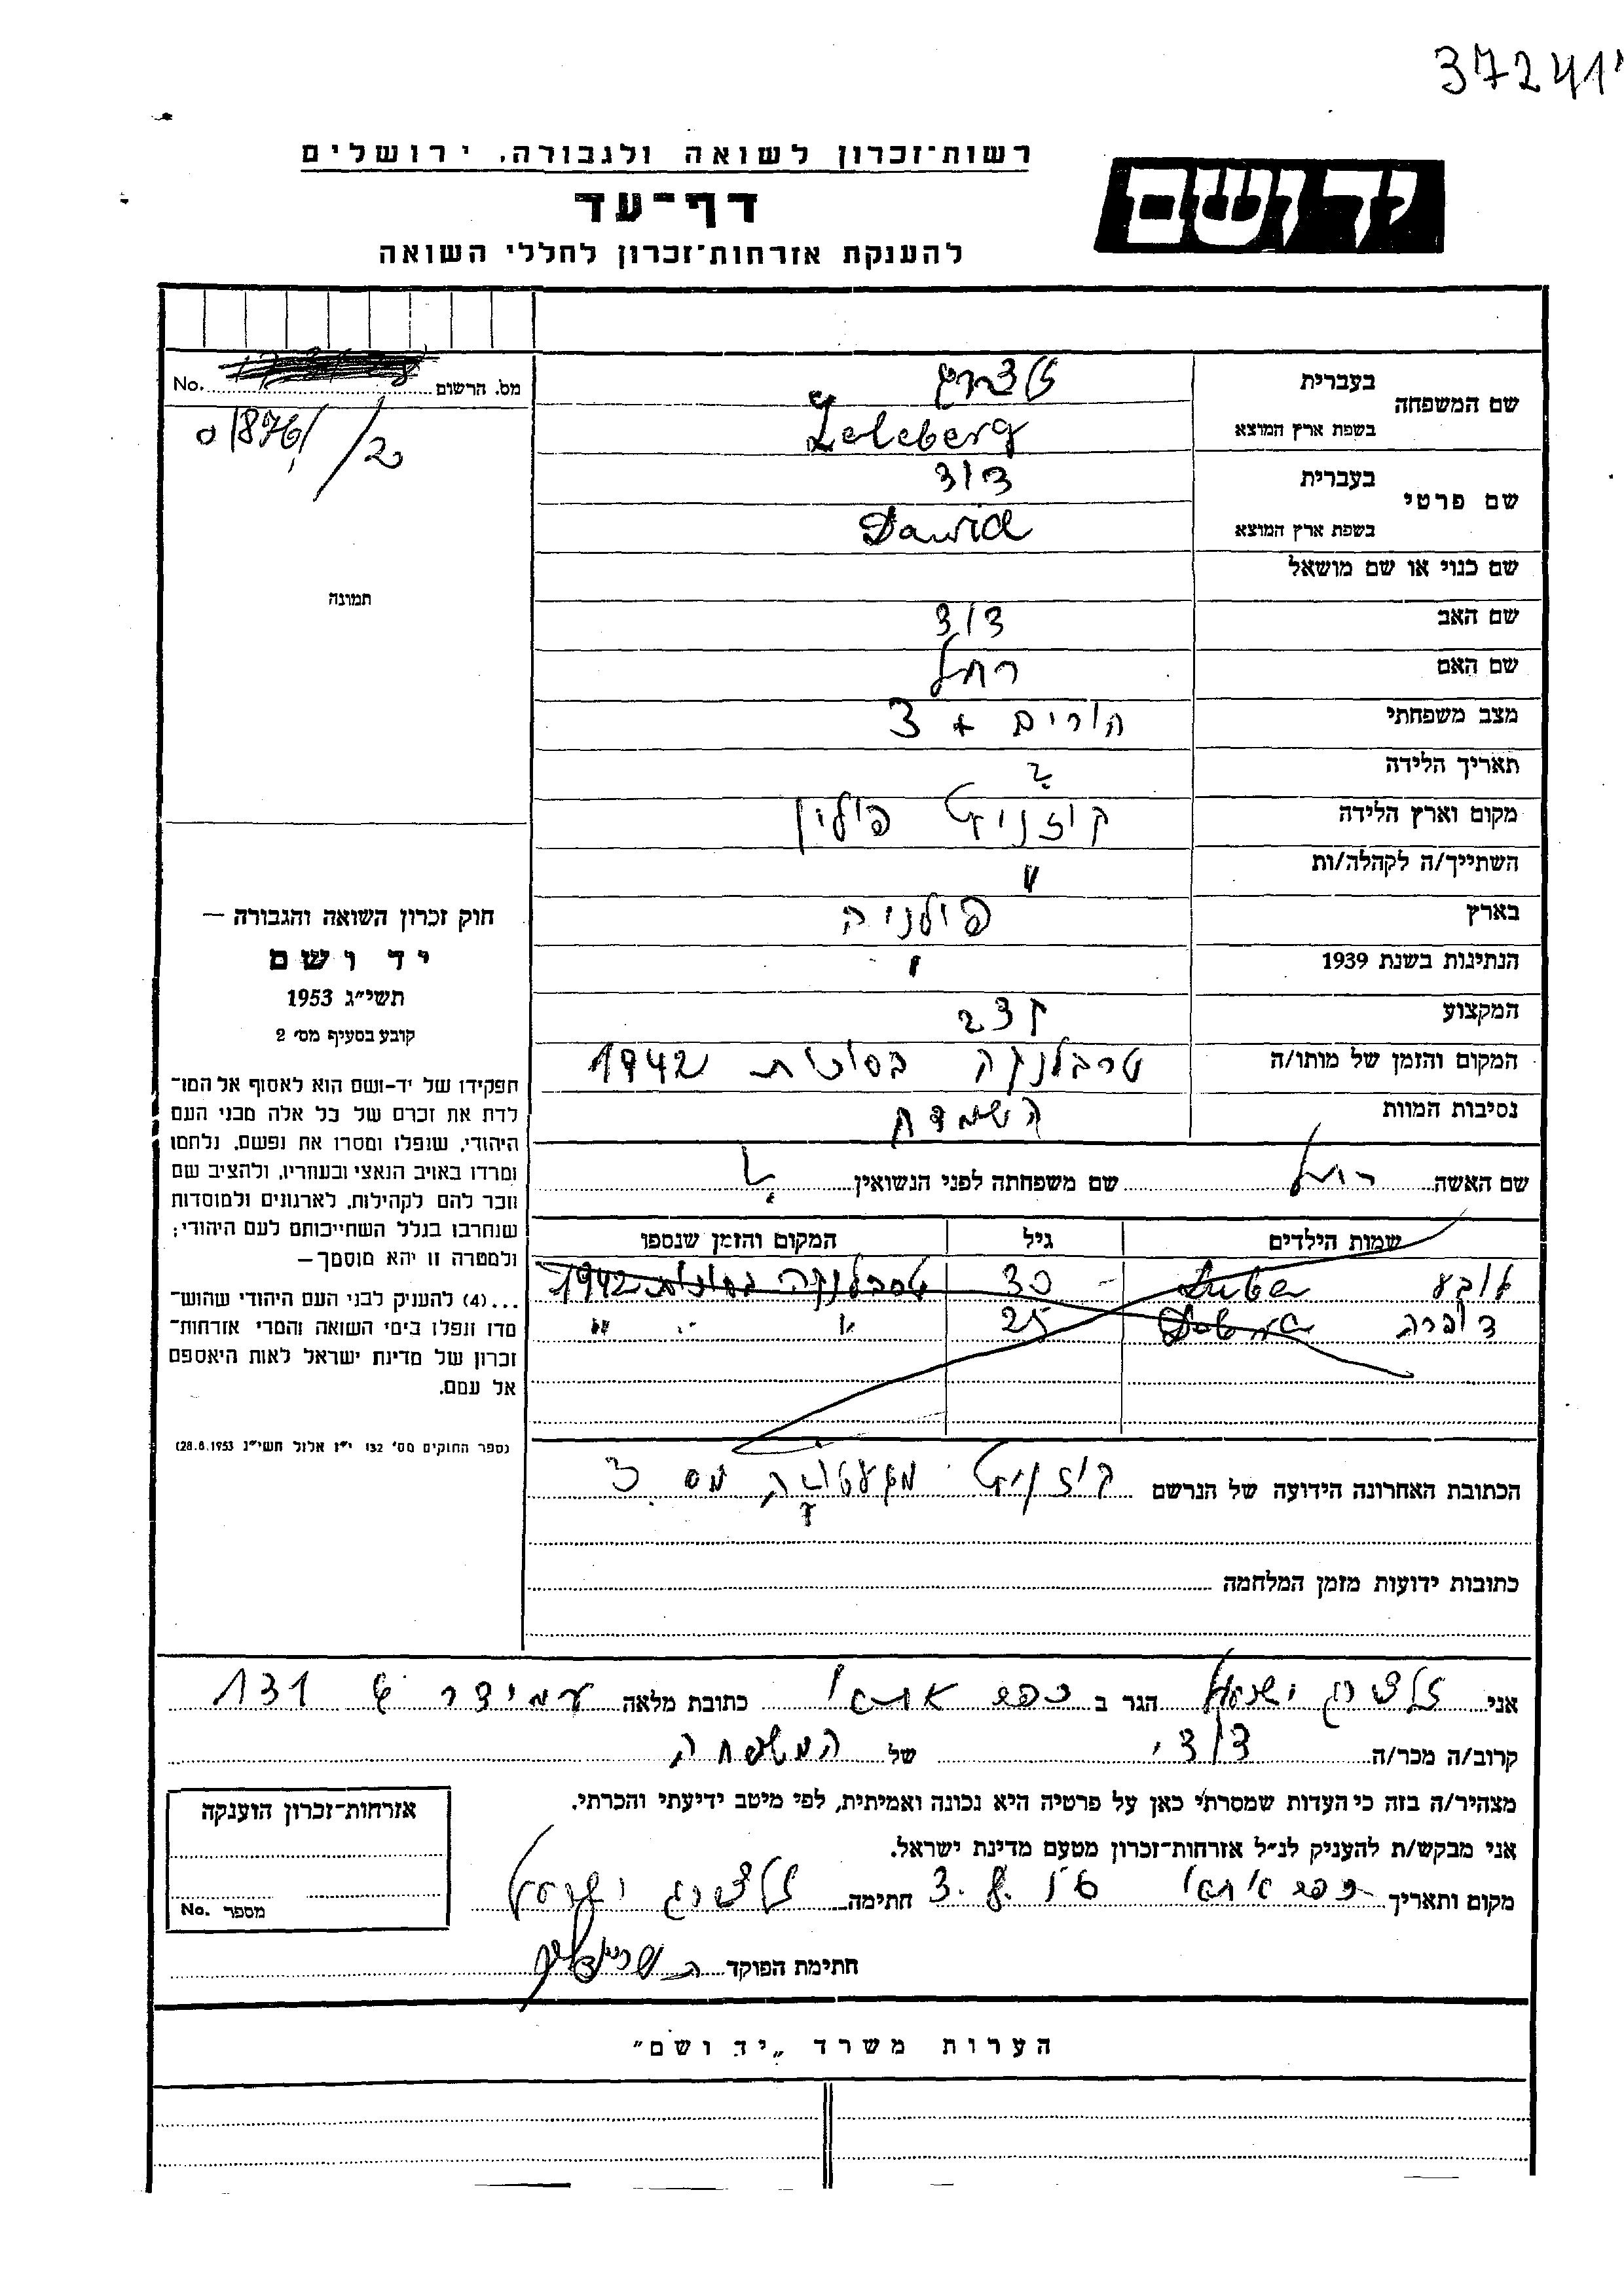 37241
רשות־זכרון לשואה ולגבורה, ירושלים
יד ושם
דף־עד
להענקת אזרחות־זכרון לחללי השואה
No. מס. הרשום
01876/ /2
תמונה
שם המשפחה
בעברית
בשפת ארץ המוצא Zeleberg
שם פרטי
בעברית דוד
בשפת ארץ המוצא Dawid
שם כנוי או שם מושאל
שם האב דוד
שם האם רחל
מצב משפחתי הורים + 3
תאריך הלידה ?
מקום וארץ הלידה קוזניץ פולין
השתייך/ה לקהלה/ות "
בארץ פולניה
הנתינות בשנת 1939 "
המקצוע קצב
המקום והזמן של מותו/ה טרבלנקה בסוכות 1942
נסיבות המוות השמדה
שם האשה רחל שם משפחתה לפני הנשואין ?
שמות הילדים גיל המקום והזמן שנספו
לובע Luba 30 טרבלנקה בסוכות 1942
דוברה Dobra 25 " " "
הכתובת האחרונה הידועה של הנרשם קוזניץ מס. 3
כתובות ידועות מזמן המלחמה
חוק זכרון השואה והגבורה —
יד ושם
תשי״ג 1953
קובע בסעיף מס׳ 2
תפקידו של יד-ושם הוא לאסוף אל המו־
לדת את זכרם של כל אלה מבני העם
היהודי, שנפלו ומסרו את נפשם, נלחמו
ומרדו באויב הנאצי ובעוזריו, ולהציב שם
וזכר להם לקהילות, לארגונים ולמוסדות
שנחרבו בגלל השתייכותם לעם היהודי;
ולמטרה זו יהא מוסמך—
...(4) להעניק לבני העם היהודי שהוש־
מדו ונפלו בימי השואה והמרי אזרחות־
זכרון של מדינת ישראל לאות היאספם
אל עמם.
(ספר החוקים מס׳ 132 י״ז אלול תשי״ג 28.8.1953)
אני ישראל הגר ב כפר אתא כתובת מלאה עמידר 131
קרוב/ה מכר/ה דודי של המשפחה
מצהיר/ה בזה כי העדות שמסרתי כאן על פרטיה היא נכונה ואמיתית, לפי מיטב ידיעתי והכרתי.
אני מבקש/ת להעניק לנ״ל אזרחות־זכרון מטעם מדינת ישראל.
מקום ותאריך כפר אתא חתימה ישראל
חתימת הפוקד
אזרחות־זכרון הוענקה
No. מספר
הערות משרד „יד ושם״